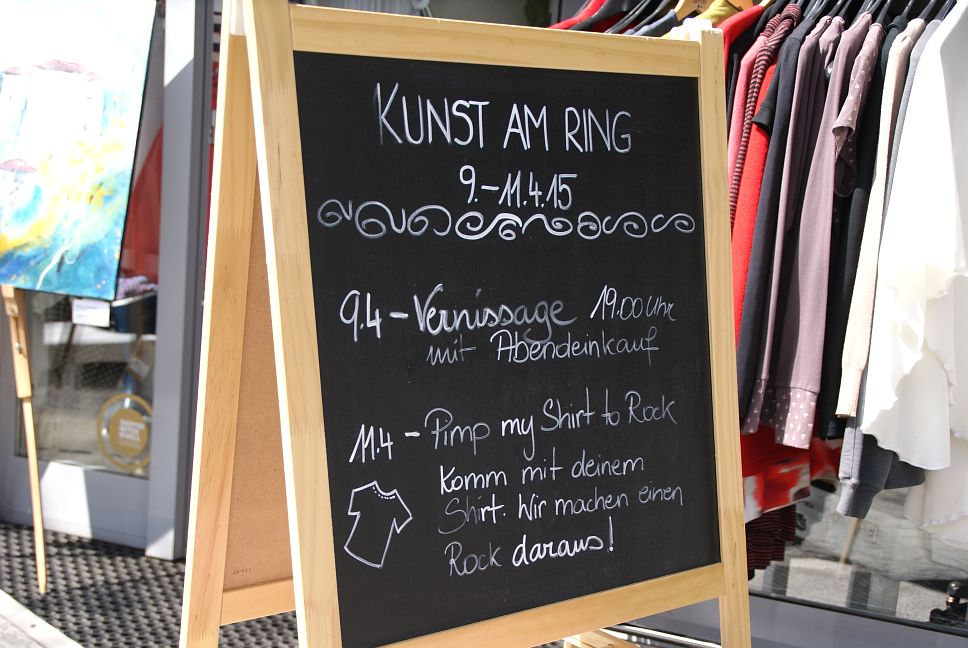 KUNST AM RING
9.-11.4.15
9.4 - Vernissage 19.00 Uhr
mit Abendeinkauf
11.4 - Pimp my Shirt to Rock
Komm mit deinem
Shirt. Wir machen einen
Rock daraus!